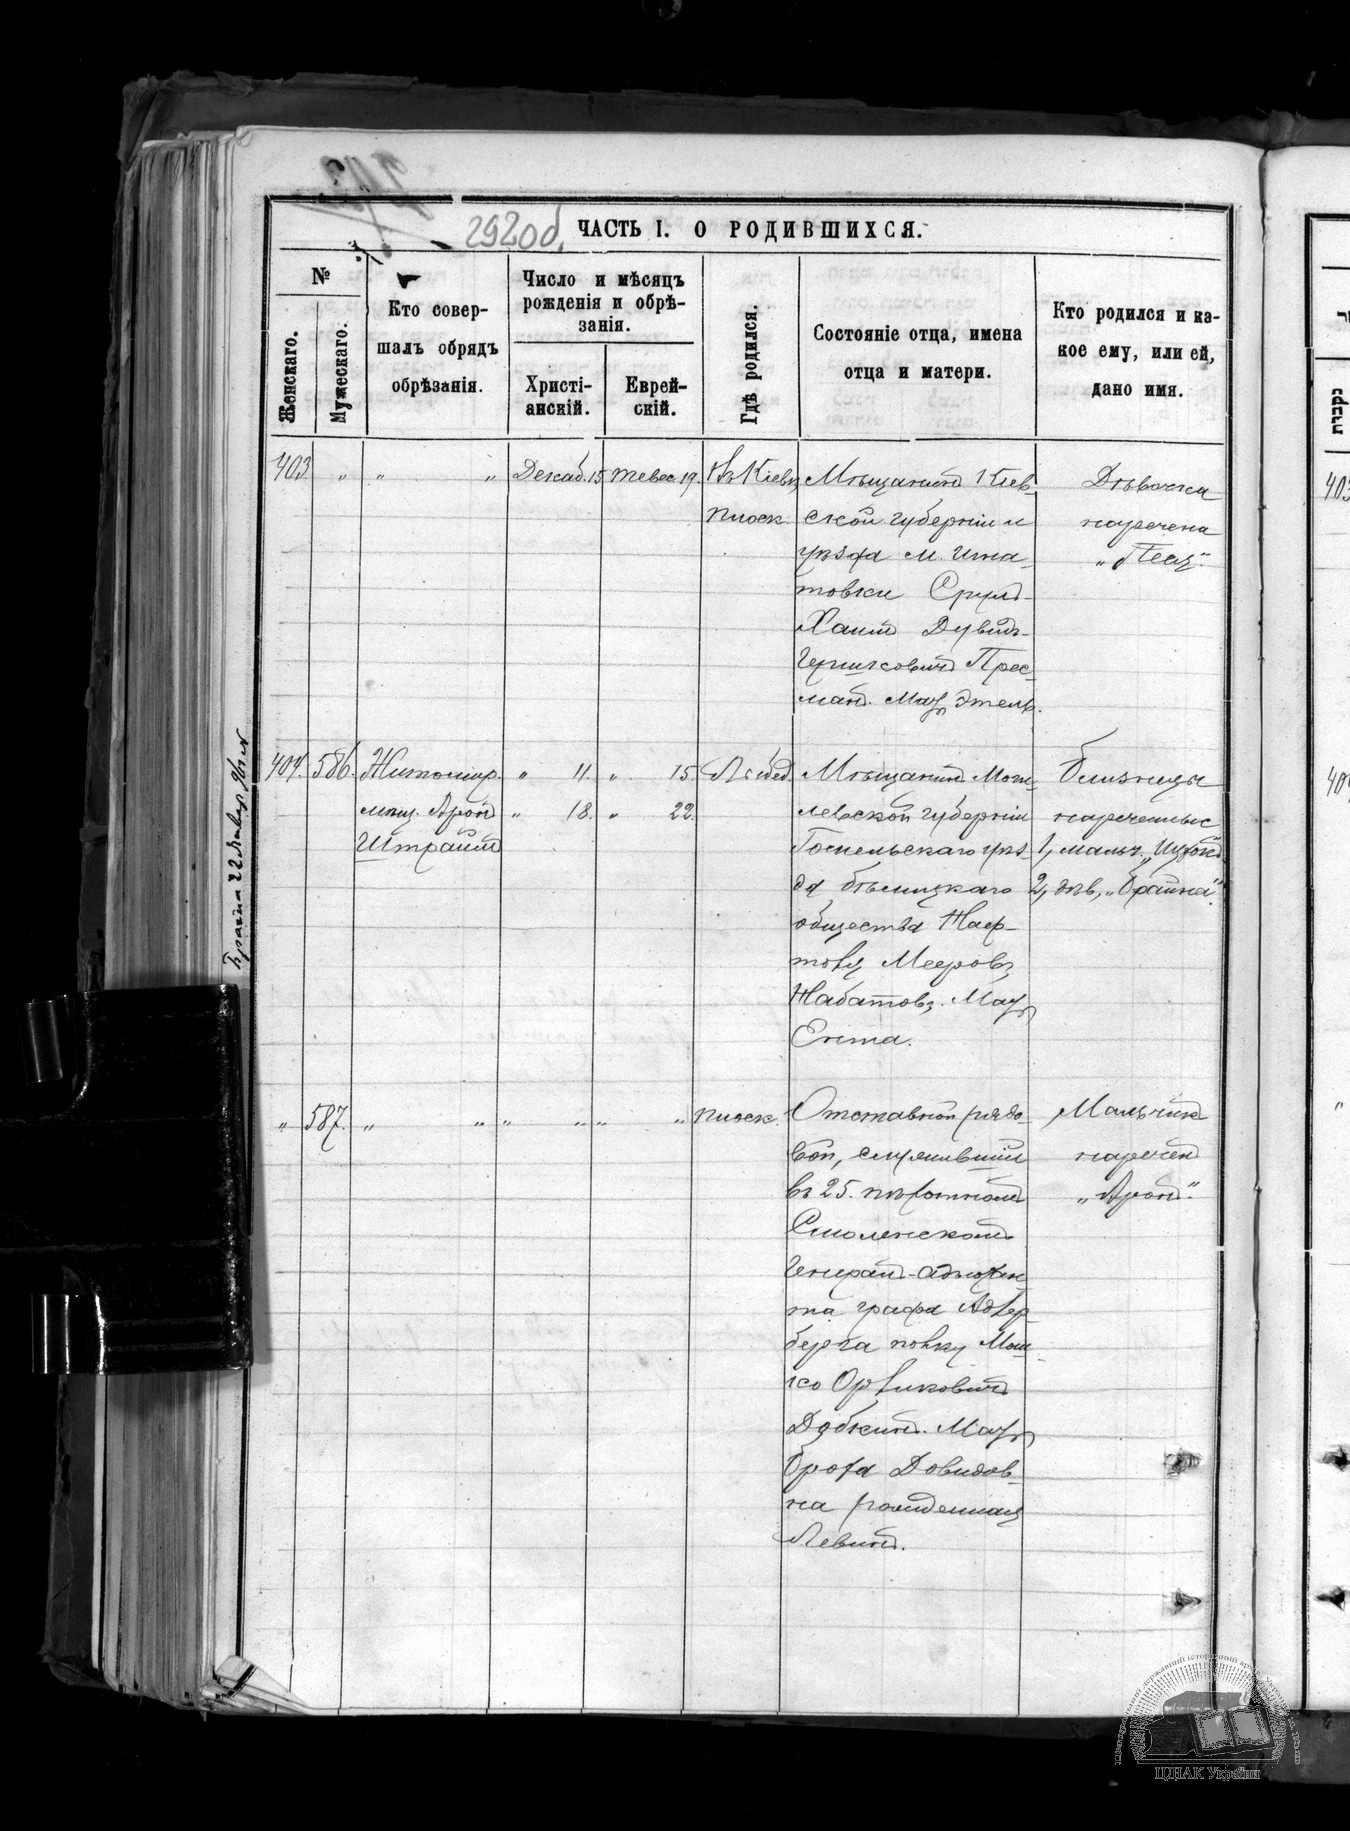 292об.
ЧАСТЬ I. О РОДИВШИХСЯ.
№
Женскаго.
Мужескаго.
Кто совер-
шалъ обрядъ
обрѣзанія.
Число и мѣсяцъ
рожденія и обрѣ-
занія.
Христі-
анскій.
Еврей-
скій.
Гдѣ родился.
Состояніе отца, имена
отца и матери.
Кто родился и ка-
кое ему, или ей,
дано имя.
403 " " " Декаб. 15 тевес 19.
Въ Кіевѣ,
плоск.
Мѣщанинъ Кіев-
ской губерніи и
уѣзда м. Игна-
товки Сруль-
Хаим Дувидъ-
Гершковичъ Прес-
манъ. Мать Этель.
Дѣвочка
наречена
„Песя".
404. 586.
Житомир.
мѣщ. Аронъ
Штраймъ
" 11. " 15.
" 18. " 22.
Лыбед.
Мѣщанинъ Моги-
левской губерніи
Гомельскаго уѣз-
да бѣлицкаго
общества Наф-
толь Мееровъ
Жабатовъ. Мать
Ента.
близнецы
нареченные
1, мальч. „Цудикъ
2, дѣв. „Брайна".
" 587. " " " " " "
плоск.
Отставной рядо-
вой, служившій
въ 25. пѣхотномъ
Смоленскомъ
Генералъ-адъютан-
та графа Адлер-
берга полку Мош-
ко Орликовичъ
Добкинъ. Мать
Броха Довидов-
на рожденная
Левинъ.
Мальчикъ
нареченъ
„Аронъ".
ЦНАК України